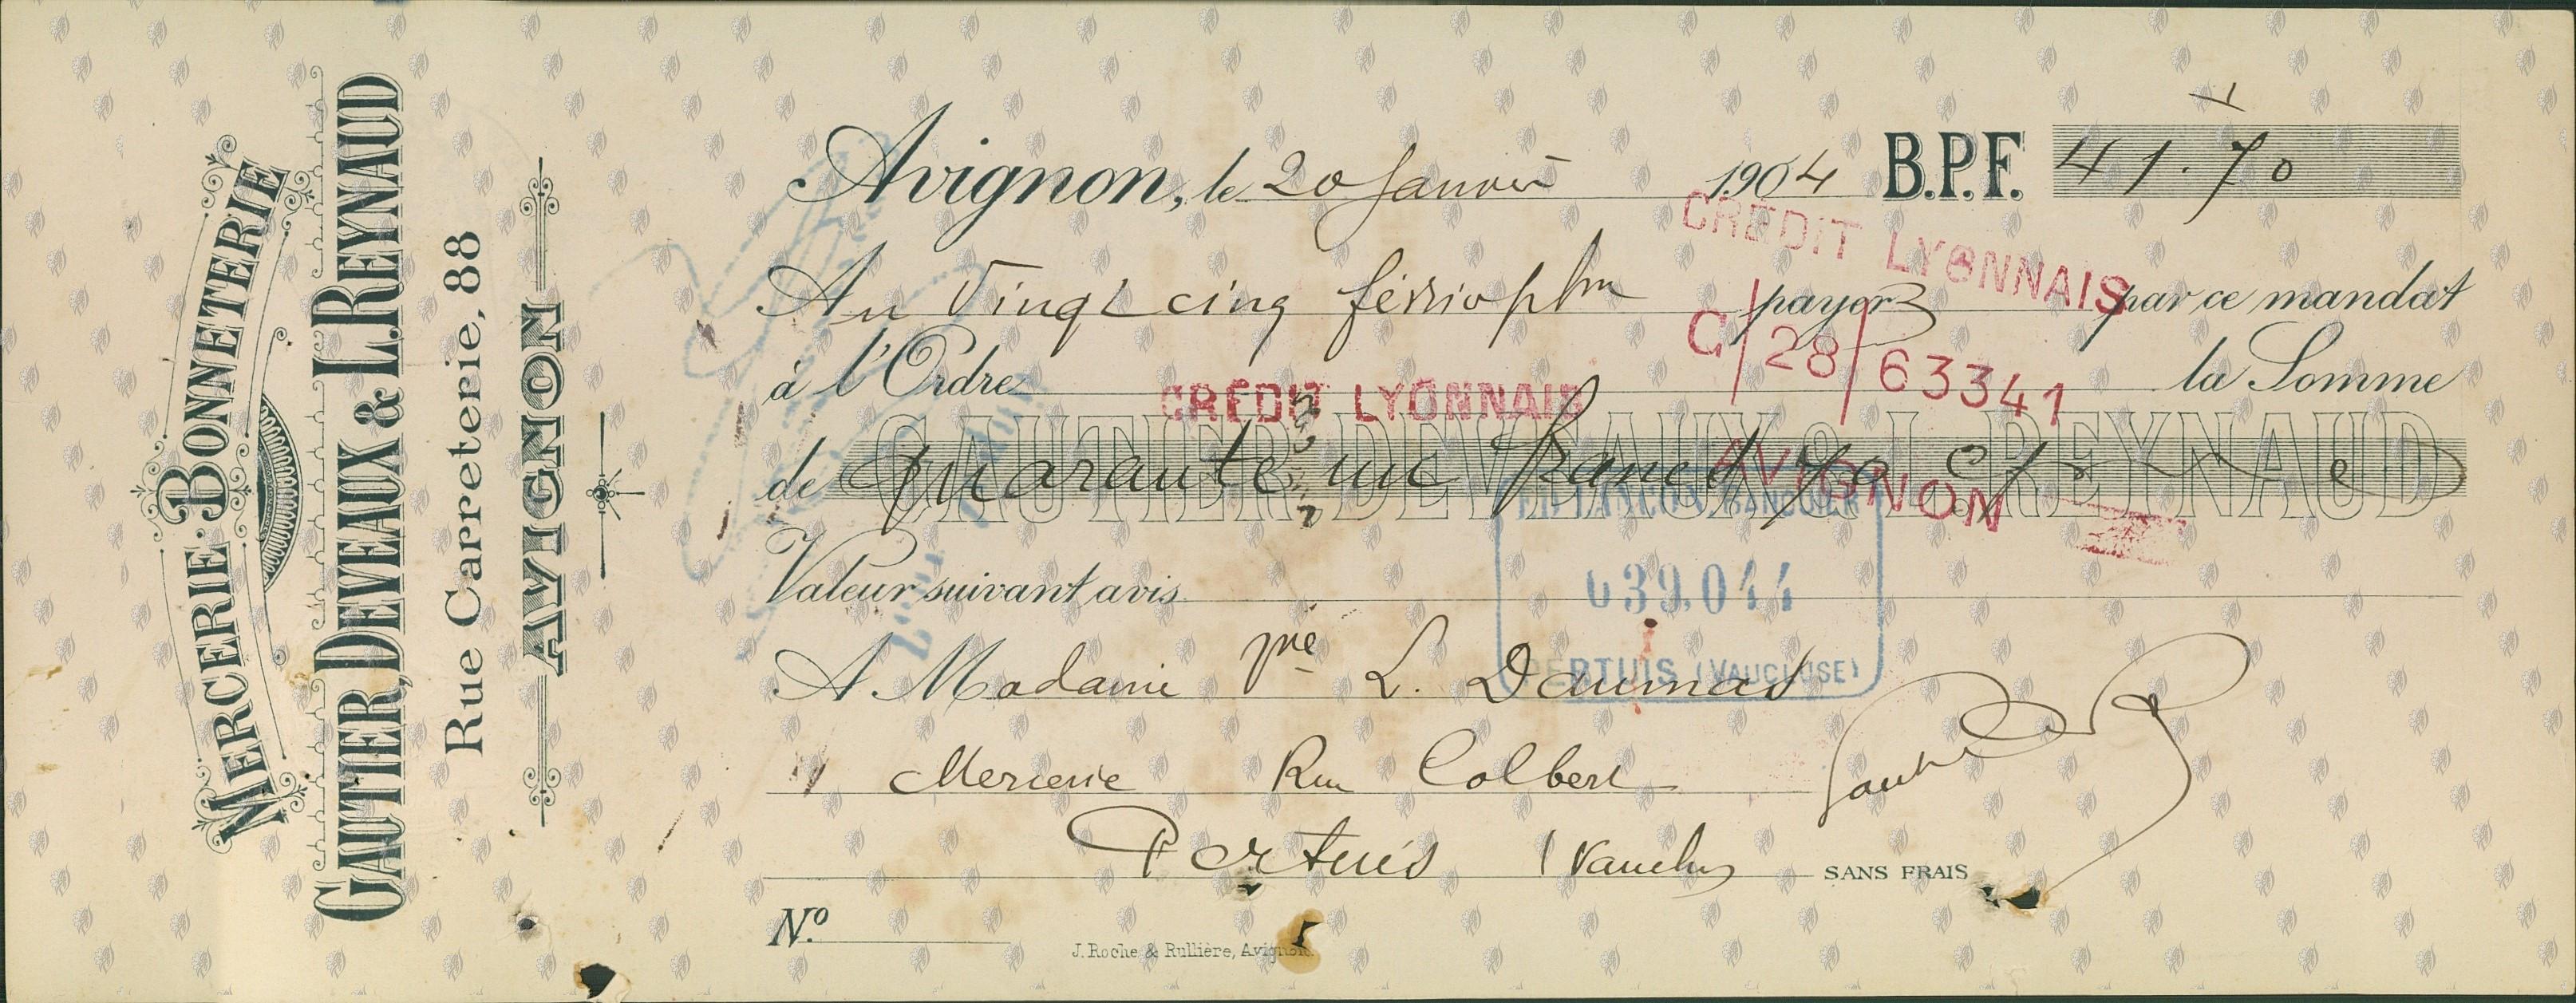 MERCERIE · BONNETERIE
GAUTIER, DEVEAUX & L. REYNAUD
Rue Carreterie, 88
AVIGNON
Avignon, le 20 Janvier 1904 B.P.F. 41.70
CREDIT LYONNAIS
Au Vingt cinq février payez par ce mandat
C/28/63341
à l'Ordre CREDIT LYONNAIS la Somme
GAUTIER DEVEAUX & L. REYNAUD
de Quarante un francs 70 c
AVIGNON
639.044
Valeur suivant avis
PERTUIS (VAUCLUSE)
A Madame L. Daumas
Mercerie Rue Colbert
Pertuis (Vaucluse) SANS FRAIS
No.
J. Roche & Rullière, Avignon.